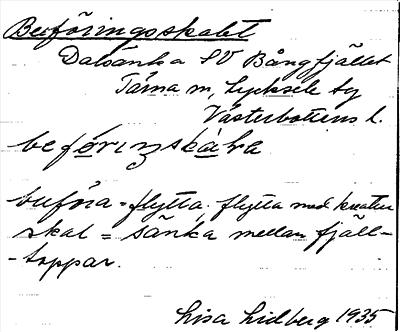 Buföringsskalet
Dalsänka SV Bångfjället
Tärna sn, Lycksele tg
Västerbottens l.
buföra = flytta; flytta med kreatur
skal = sänka mellan fjäll-
-toppar.
Lisa Lidberg 1935